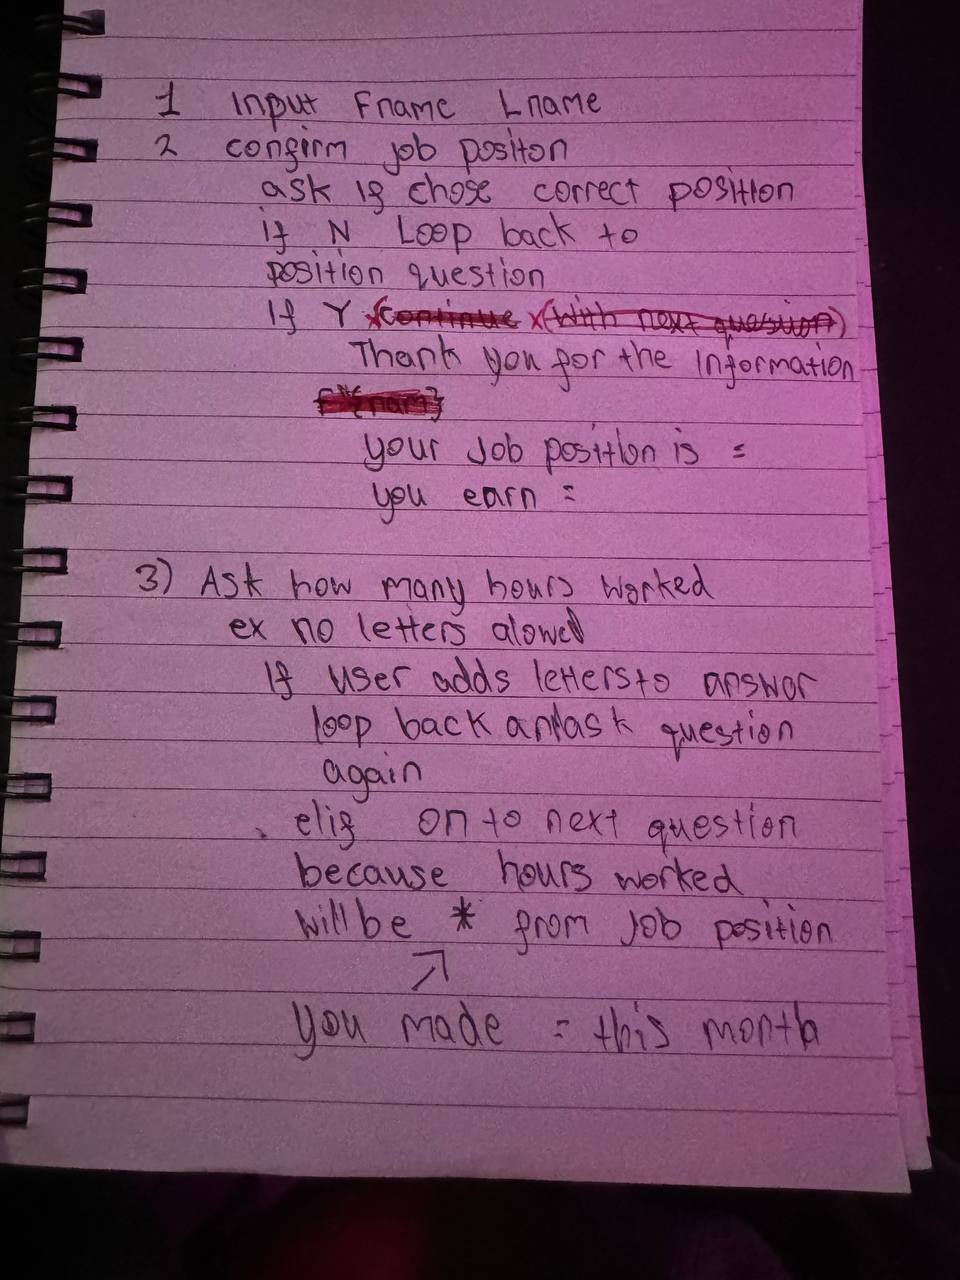 1 Input Fname Lname
2 confirm job positon
ask if chose correct position
if N Loop back to
position question
If Y (continue (with next question)
Thank you for the Information
f"{nam}
your Job position is =
you earn =
3) Ask how many hours worked
ex no letters alowed
If user adds letters to answor
loop back and ask question
again
elif on to next question
because hours worked
will be * from Job position
you made = this month